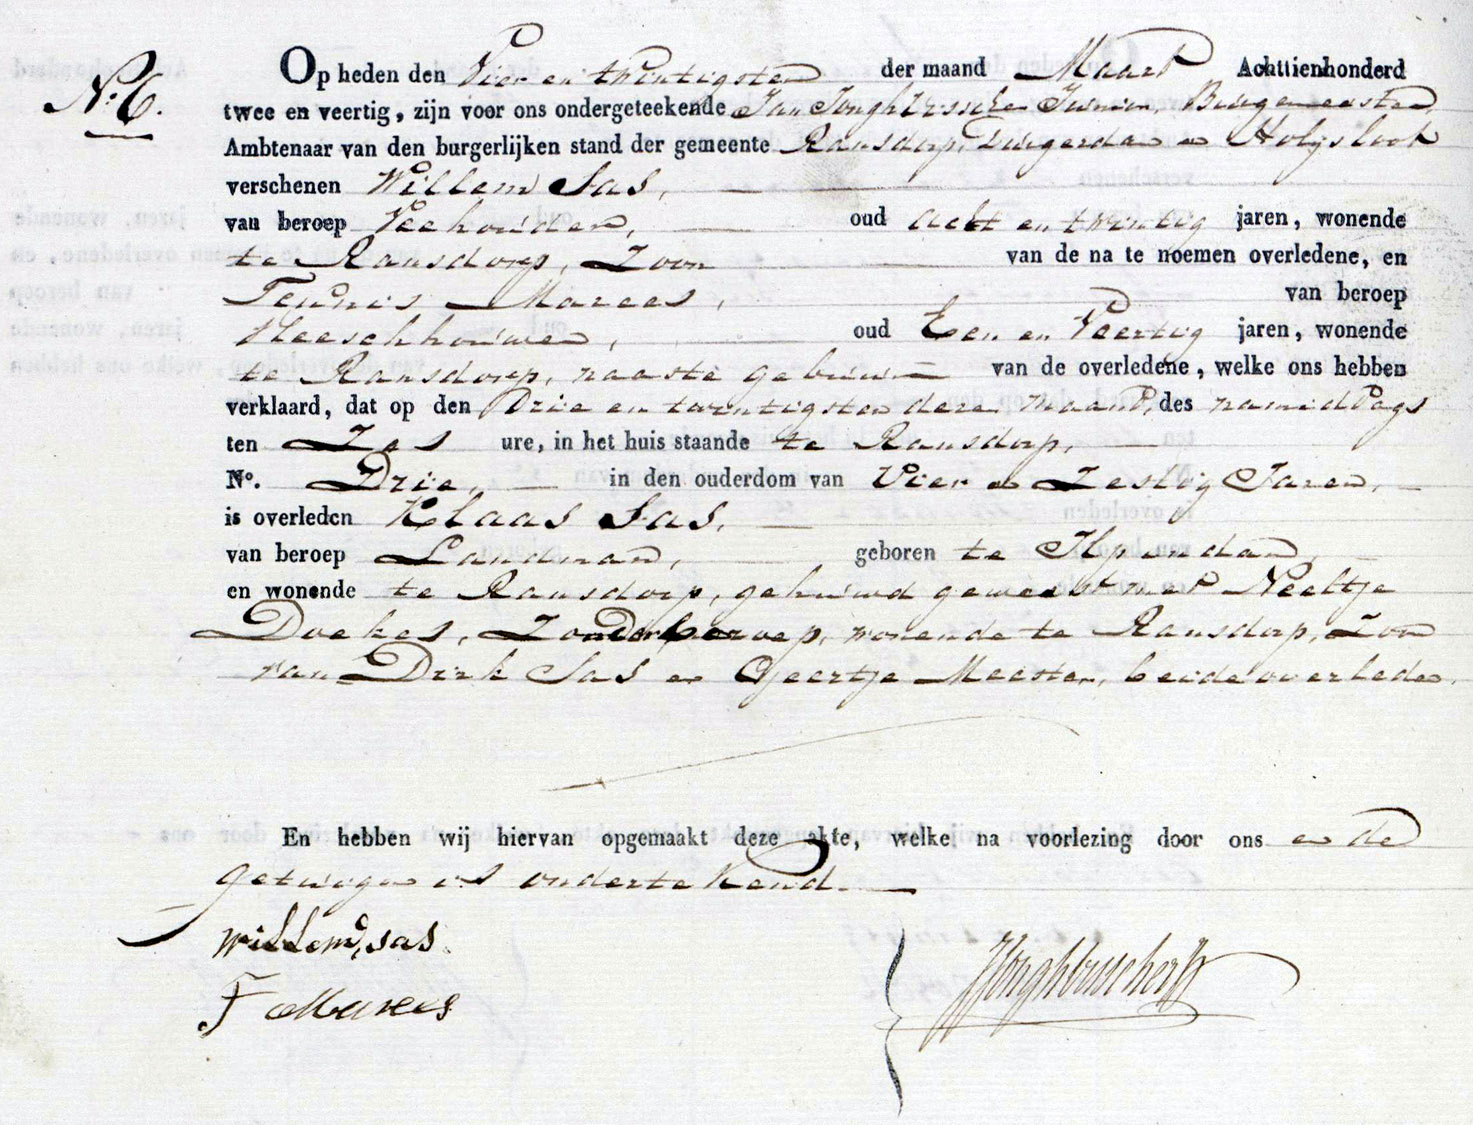 N.º 6.
Op heden den Vier en twintigsten der maand Maart Achttienhonderd
twee en veertig, zijn voor ons ondergeteekende Jan Jongh Visscher Junior, Burgemeester,
Ambtenaar van den burgerlijken stand der gemeente Ransdorp, en Holijsloot
verschenen Willem Sas,
van beroep Veehouder, oud acht en twintig jaren, wonende
te Ransdorp, Zoon van de na te noemen overledene, en
Teunis Marees, van beroep
Vleeschhouwer, oud Een en Veertig jaren, wonende
te Ransdorp, naaste gebuur van de overledene, welke ons hebben
verklaard, dat op den Drie en twintigsten dezer maand, des namiddags
ten Zes ure, in het huis staande te Ransdorp,
No. Drie, in den ouderdom van Vier en Zestig Jaren,
is overleden Klaas Sas,
van beroep Landman, geboren te Ilpendam,
en wonende te Ransdorp, gehuwd geweest met Neeltje
Doekes, Zonder beroep, wonende te Ransdorp, Zoon
van Dirk Sas en Geertje Meester, beide overleden.
En hebben wij hiervan opgemaakt deze akte, welke na voorlezing door ons en de
getuigen is onderteekend.
willem sas
T Marees